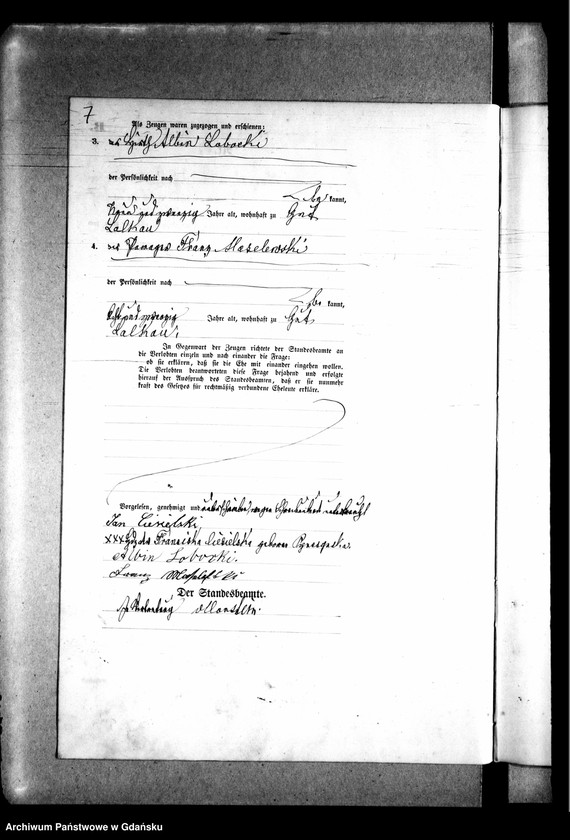 7
Als Zeugen waren zugezogen und erschienen:
3. der Albin Lobocki
der Persönlichkeit nach
be kannt,
und zwanzig Jahre alt, wohnhaft zu Gut
Lalkau
4. der Franz
der Persönlichkeit nach
be kannt,
und zwanzig Jahre alt, wohnhaft zu Gut
Lalkau.
In Gegenwart der Zeugen richtete der Standesbeamte an
die Verlobten einzeln und nach einander die Frage:
ob sie erklären, daß sie die Ehe mit einander eingehen wollen.
Die Verlobten beantworteten diese Frage bejahend und erfolgte
hierauf der Ausspruch des Standesbeamten, daß er sie nunmehr
kraft des Gesetzes für rechtmäßig verbundene Eheleute erkläre.
Vorgelesen, genehmigt und wegen
Jan Ciesielski
xxx Franciska Ciesielska geborene
Albin Lobocki.
Der Standesbeamte.
Archiwum Państwowe w Gdańsku